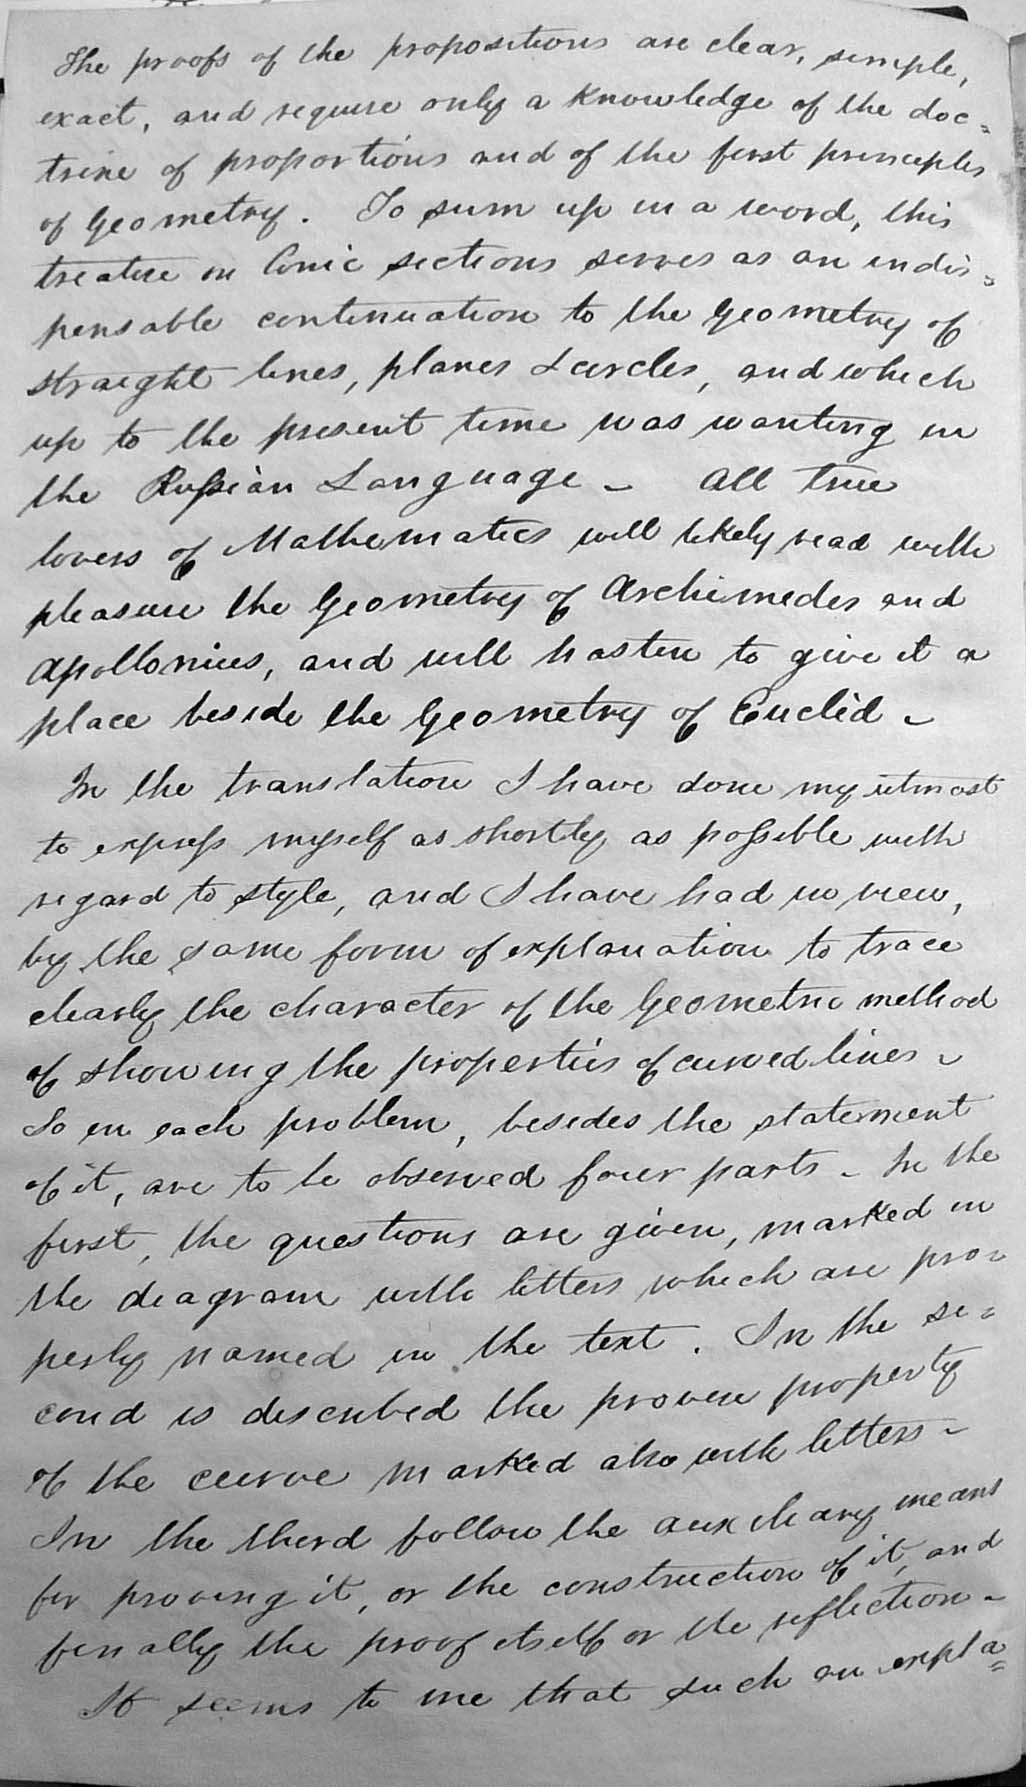 The proofs of the propositions are clear, simple,
exact, and require only a knowledge of the doc=
trine of proportions and of the first principles
of Geometry. To sum up in a word, this
treatise on Conic sections serves as an indis=
pensable continuation to the Geometry of
straight lines, planes & circles, and which
up to the present time was wanting in
the Russian Language - All true
lovers of Mathematics will likely read with
pleasure the Geometry of Archimedes and
Apollonius, and will hasten to give it a
place beside the Geometry of Euclid -
In the translation I have done my utmost
to express myself as shortly as possible with
regard to style, and I have had in view,
by the same form of explanation to trace
clearly the character of the Geometric method
of showing the properties of curved lines -
So in each problem, besides the statement
of it, are to be observed four parts - In the
first, the questions are given, marked in
the diagram with letters which are pro=
perly named in the text. In the se=
cond is described the proven property
of the curve marked also with letters -
In the third follow the auxiliary means
for proving it, or the construction of it, and
finally the proof itself or the reflection -
It seems to me that such an expla=